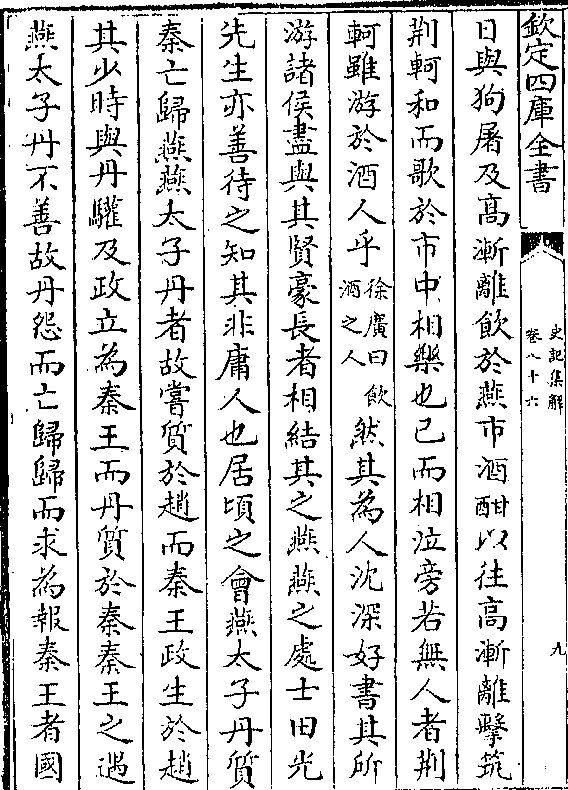 欽定四庫全書
史記集解
卷八十六
九
日與狗屠及髙漸離飲於燕市酒酣以往高漸離擊筑
荆軻和而歌於市中相樂也已而相泣旁若無人者荆
軻雖游於酒人乎徐廣曰飲酒之人然其為人沈深好書其所
游諸侯盡與其賢豪長者相結其之燕燕之處士田光
先生亦善待之知其非庸人也居頃之會燕太子丹質
秦亡歸燕燕太子丹者故嘗質於趙而秦王政生於趙
其少時與丹驩及政立為秦王而丹質於秦秦王之遇
燕太子丹不善故丹怨而亡歸歸而求為報秦王者國